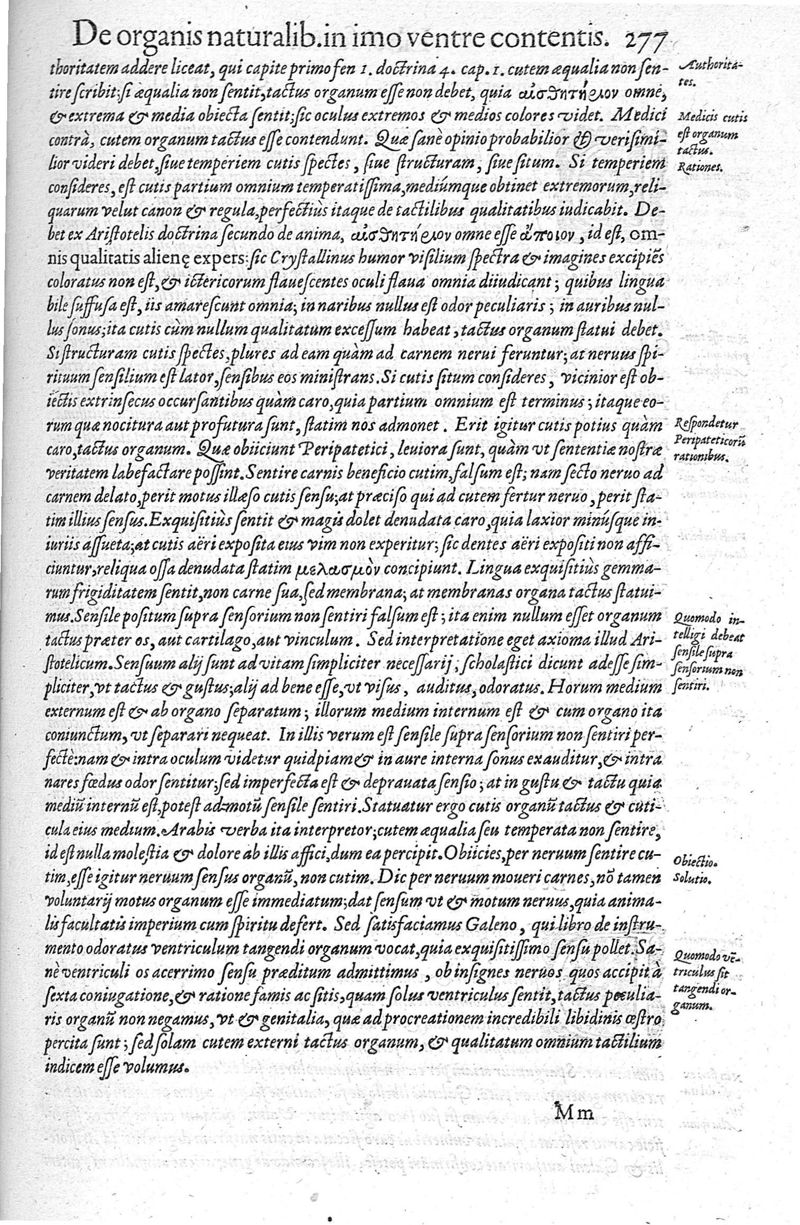 De organis naturalib. in imo ventre contentis. 277
thoritatem addere liceat, qui capite primo fen 1. doctrina 4. cap. 1. cutem æqualia non sen-
tire scribit: si æqualia non sentit, tactus organum esse non debet, quia αἰσθητήριον omne,
& extrema & media obiecta sentit; sic oculus extremos & medios colores videt. Medici
contrà, cutem organum tactus esse contendunt. Quæ sanè opinio probabilior & verisimi-
lior videri debet, siue temperiem cutis spectes, siue structuram, siue situm. Si temperiem
consideres, est cutis partium omnium temperatissima, mediúmque obtinet extremorum, reli-
quarum velut canon & regula, perfectiùs itaque de tactilibus qualitatibus iudicabit. De-
bet ex Aristotelis doctrina secundo de anima, αἰσθητήριον omne esse ἄποιον, id est, om-
nis qualitatis alienę expers: sic Crystallinus humor visilium spectra & imagines excipiēs
coloratus non est, & ictericorum flauescentes oculi flaua omnia diiudicant; quibus lingua
bile suffusa est, iis amarescunt omnia; in naribus nullus est odor peculiaris; in auribus nul-
lus sonus; ita cutis cùm nullum qualitatum excessum habeat, tactus organum statui debet.
Si structuram cutis spectes, plures ad eam quàm ad carnem nerui feruntur; at neruus spi-
rituum sensilium est lator, sensibus eos ministrans. Si cutis situm consideres, vicinior est ob-
iectis extrinsecus occursantibus quàm caro, quia partium omnium est terminus; itaque eo-
rum quæ nocitura aut profutura sunt, statim nos admonet. Erit igitur cutis potius quàm
caro, tactus organum. Quæ obiiciunt Peripatetici, leuiora sunt, quàm vt sententiæ nostræ
veritatem labefactare possint. Sentire carnis beneficio cutim, falsum est; nam secto neruo ad
carnem delato, perit motus illæso cutis sensu; at præciso qui ad cutem fertur neruo, perit sta-
tim illius sensus. Exquisitiùs sentit & magis dolet denudata caro, quia laxior minúsque in-
iuriis assueta; at cutis aëri exposita eius vim non experitur; sic dentes aëri expositi non affi-
ciuntur, reliqua ossa denudata statim μελασμὸν concipiunt. Lingua exquisitiùs gemma-
rum frigiditatem sentit, non carne sua, sed membrana; at membranas organa tactus statui-
mus. Sensile positum supra sensorium non sentiri falsum est; ita enim nullum esset organum
tactus præter os, aut cartilago, aut vinculum. Sed interpretatione eget axioma illud Ari-
stotelicum. Sensuum alij sunt ad vitam simpliciter necessarij, scholastici dicunt adesse sim-
pliciter, vt tactus & gustus; alij ad bene esse, vt visus, auditus, odoratus. Horum medium
externum est & ab organo separatum; illorum medium internum est & cum organo ita
coniunctum, vt separari nequeat. In illis verum est sensile supra sensorium non sentiri per-
fectè: nam & intra oculum videtur quidpiam & in aure interna sonus exauditur, & intra
nares fœdus odor sentitur; sed imperfecta est & deprauata sensio; at in gustu & tactu quia
mediū internū est, potest admotū sensile sentiri. Statuatur ergo cutis organū tactus & cuti-
cula eius medium. Arabis verba ita interpretor; cutem æqualia seu temperata non sentire,
id est nulla molestia & dolore ab illis affici, dum ea percipit. Obiicies, per neruum sentire cu-
tim, esse igitur neruum sensus organū, non cutim. Dic per neruum moueri carnes, nō tamen
voluntarij motus organum esse immediatum; dat sensum vt & motum neruus, quia anima-
lis facultatis imperium cum spiritu defert. Sed satisfaciamus Galeno, qui libro de instru-
mento odoratus ventriculum tangendi organum vocat, quia exquisitissimo sensu pollet. Sa-
nè ventriculi os acerrimo sensu præditum admittimus, ob insignes neruos quos accipit à
sexta coniugatione, & ratione famis ac sitis, quam solus ventriculus sentit, tactus peculia-
ris organū non negamus, vt & genitalia, quæ ad procreationem incredibili libidinis œstro
percita sunt; sed solam cutem externi tactus organum, & qualitatum omnium tactilium
indicem esse volumus.
Mm
Authorita-
tes.
Medicis cutis
est organum
tactus.
Rationes.
Respondetur
Peripateticorū
rationibus.
Quomodo in-
telligi debeat
sensile supra
sensorium non
sentiri.
Obiectio.
Solutio.
Quomodo vē-
triculus sit
tangendi or-
ganum.